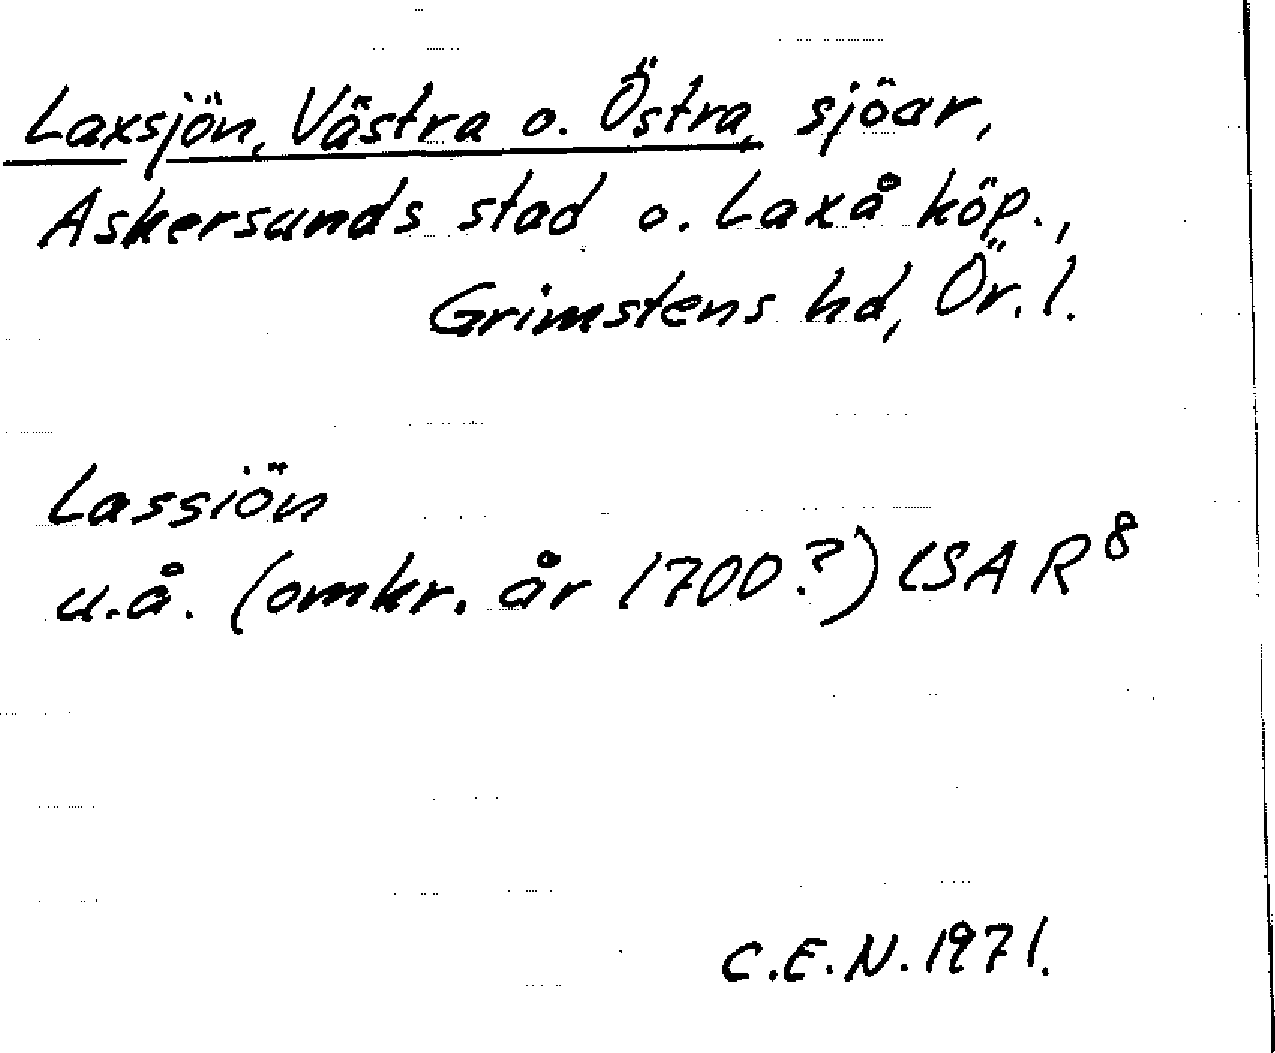 Laxsjön, Västra o. Östra, sjöar,
Askersunds stad o. Laxå köp.,
Grimstens hd, Ör. l.
Lassiön
u.å. (omkr. år 1700?) LSA R⁸
C.E.N. 1971.